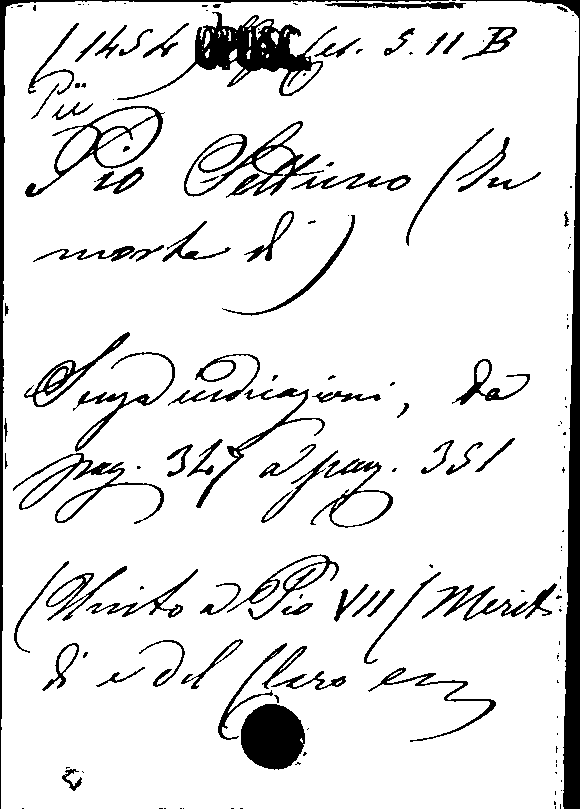 (1454 OPUSC. 5. 11 B
Pii
Pio Settimo (In
morte di)
Senza indicazioni, da
pag. 347 a pag. 351
(Unito a Pio VII (Meriti
di e del Clero ecc